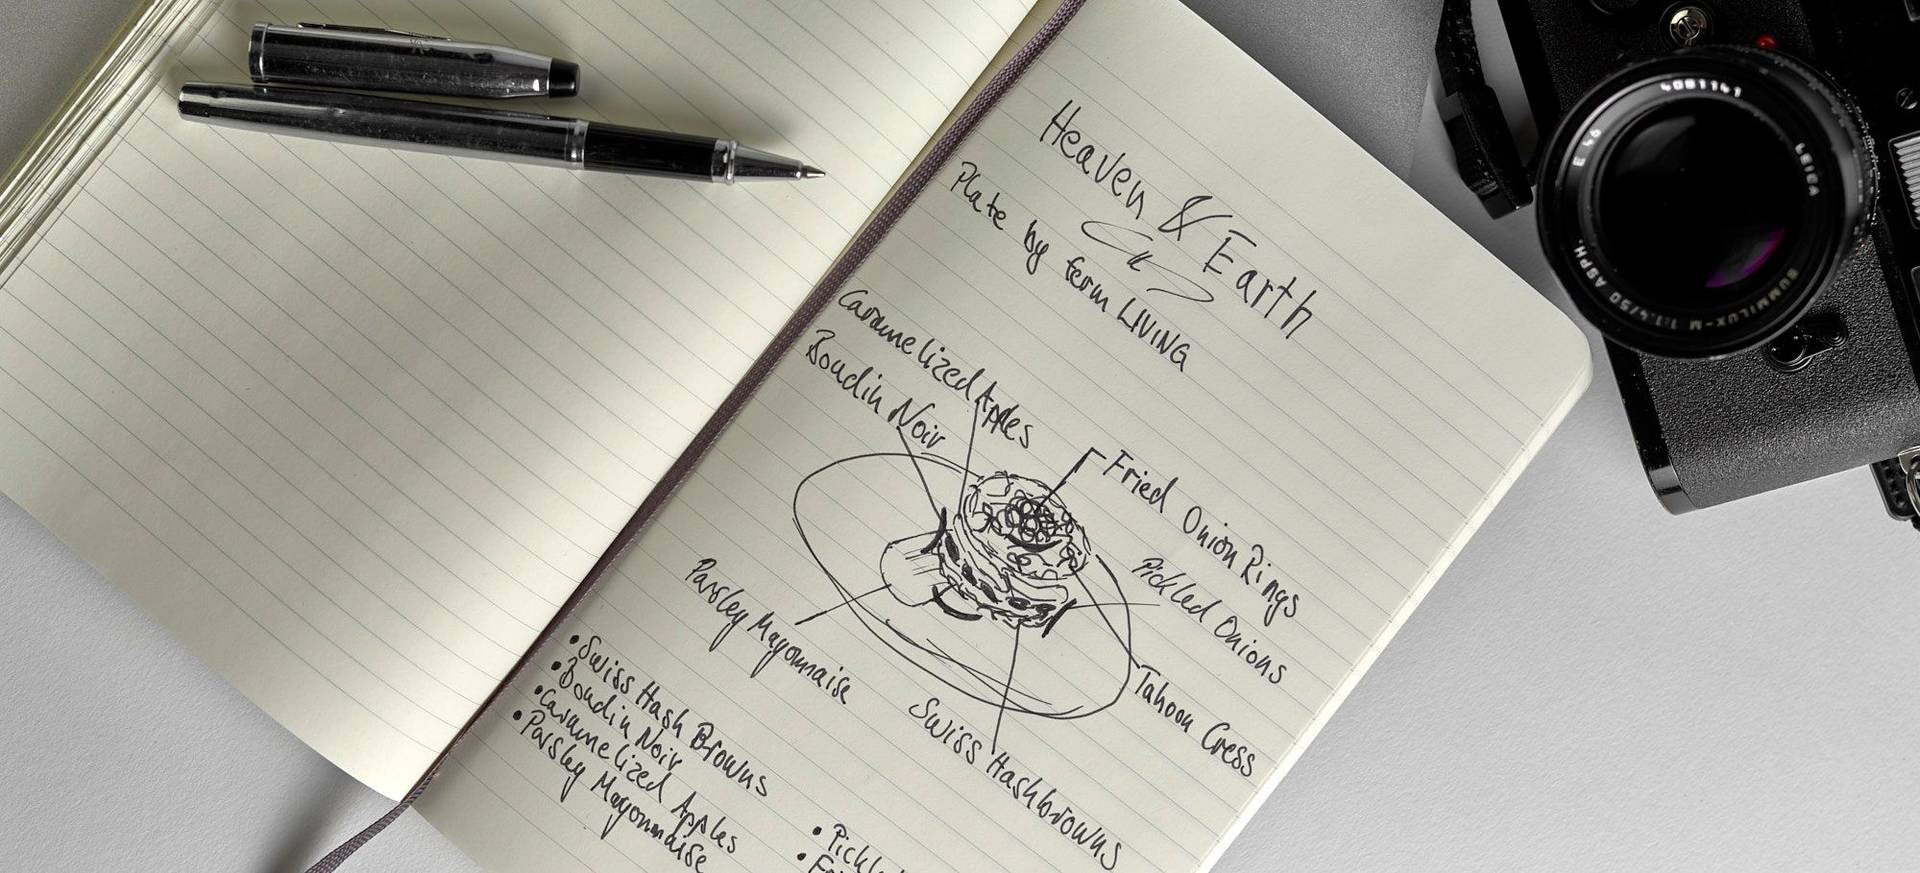 Heaven & Earth
Plate by ferm LIVING
Caramelized Apples
Boudin Noir
Fried Onion Rings
Pickled Onions
Parsley Mayonnaise
Tahoon Cress
Swiss Hashbrowns
• Swiss Hash Browns
• Boudin Noir
• Caramelized Apples
• Parsley Mayonnaise
• Pickl
4081141
E46
LEICA
SUMMILUX-M 1:1.4/50 ASPH.